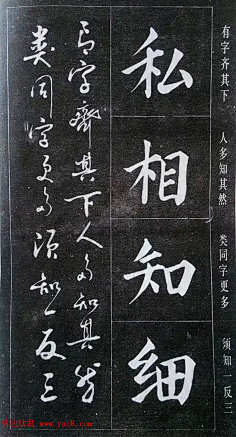 有字齐其下 人多知其然 类同字更多 须知一反三
私相知细
有字齊其下人多知其然
类同字更多须知一反三
www.yac8.com